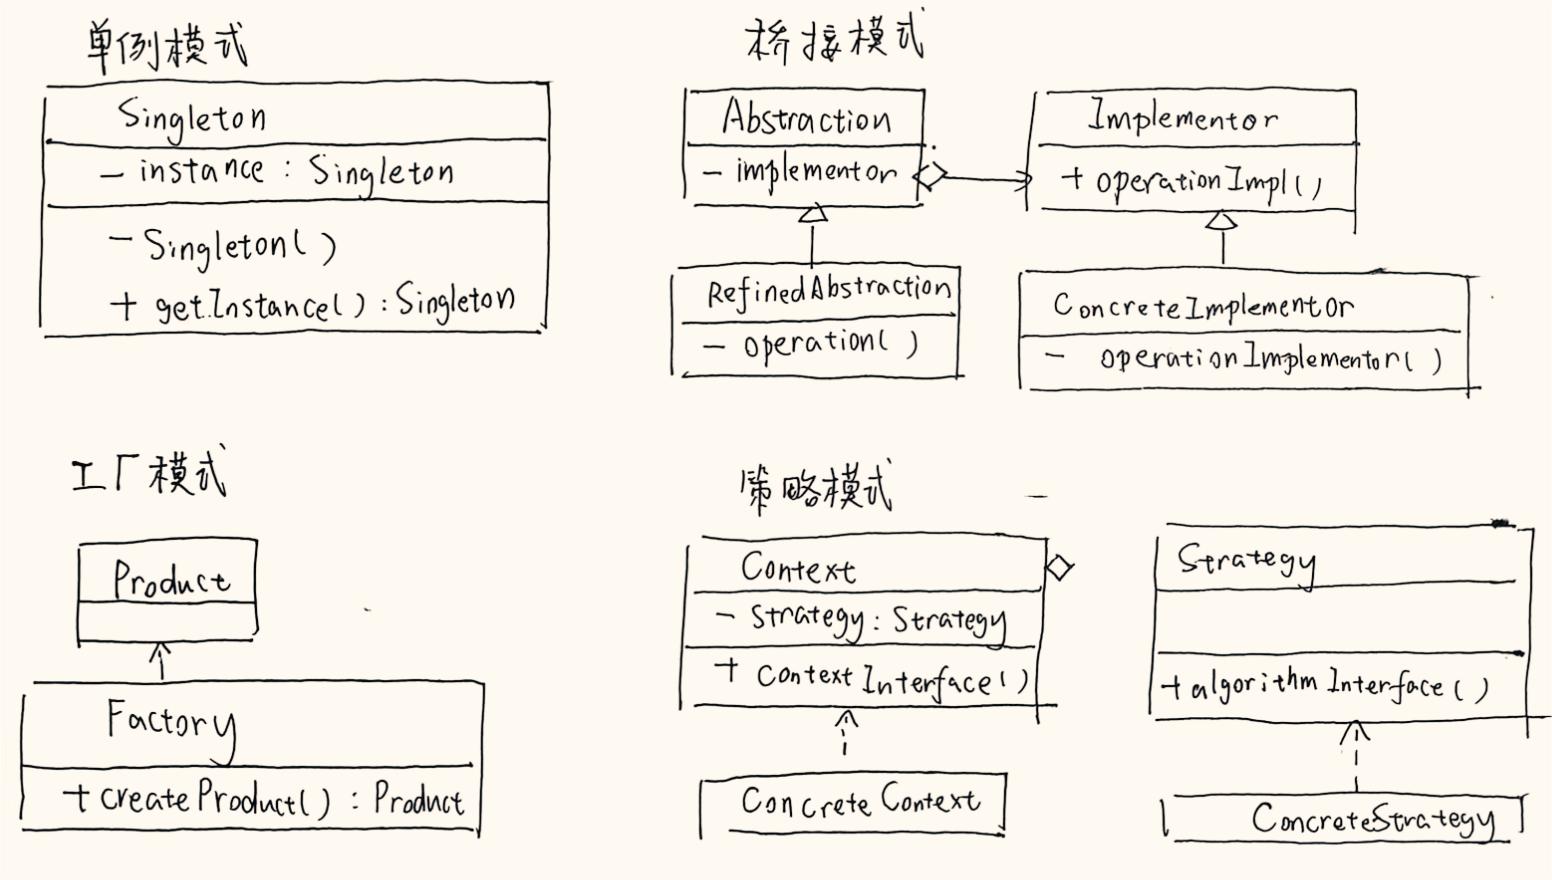 单例模式
Singleton
- instance : Singleton
- Singleton()
+ getInstance() : Singleton
桥接模式
Abstraction
- implementor
Implementor
+ operationImpl()
RefinedAbstraction
- operation()
ConcreteImplementor
- operationImplementor()
工厂模式
Product
Factory
+ createProduct() : Product
策略模式
Context
- Strategy : Strategy
+ ContextInterface()
Strategy
+ algorithmInterface()
ConcreteContext
ConcreteStrategy